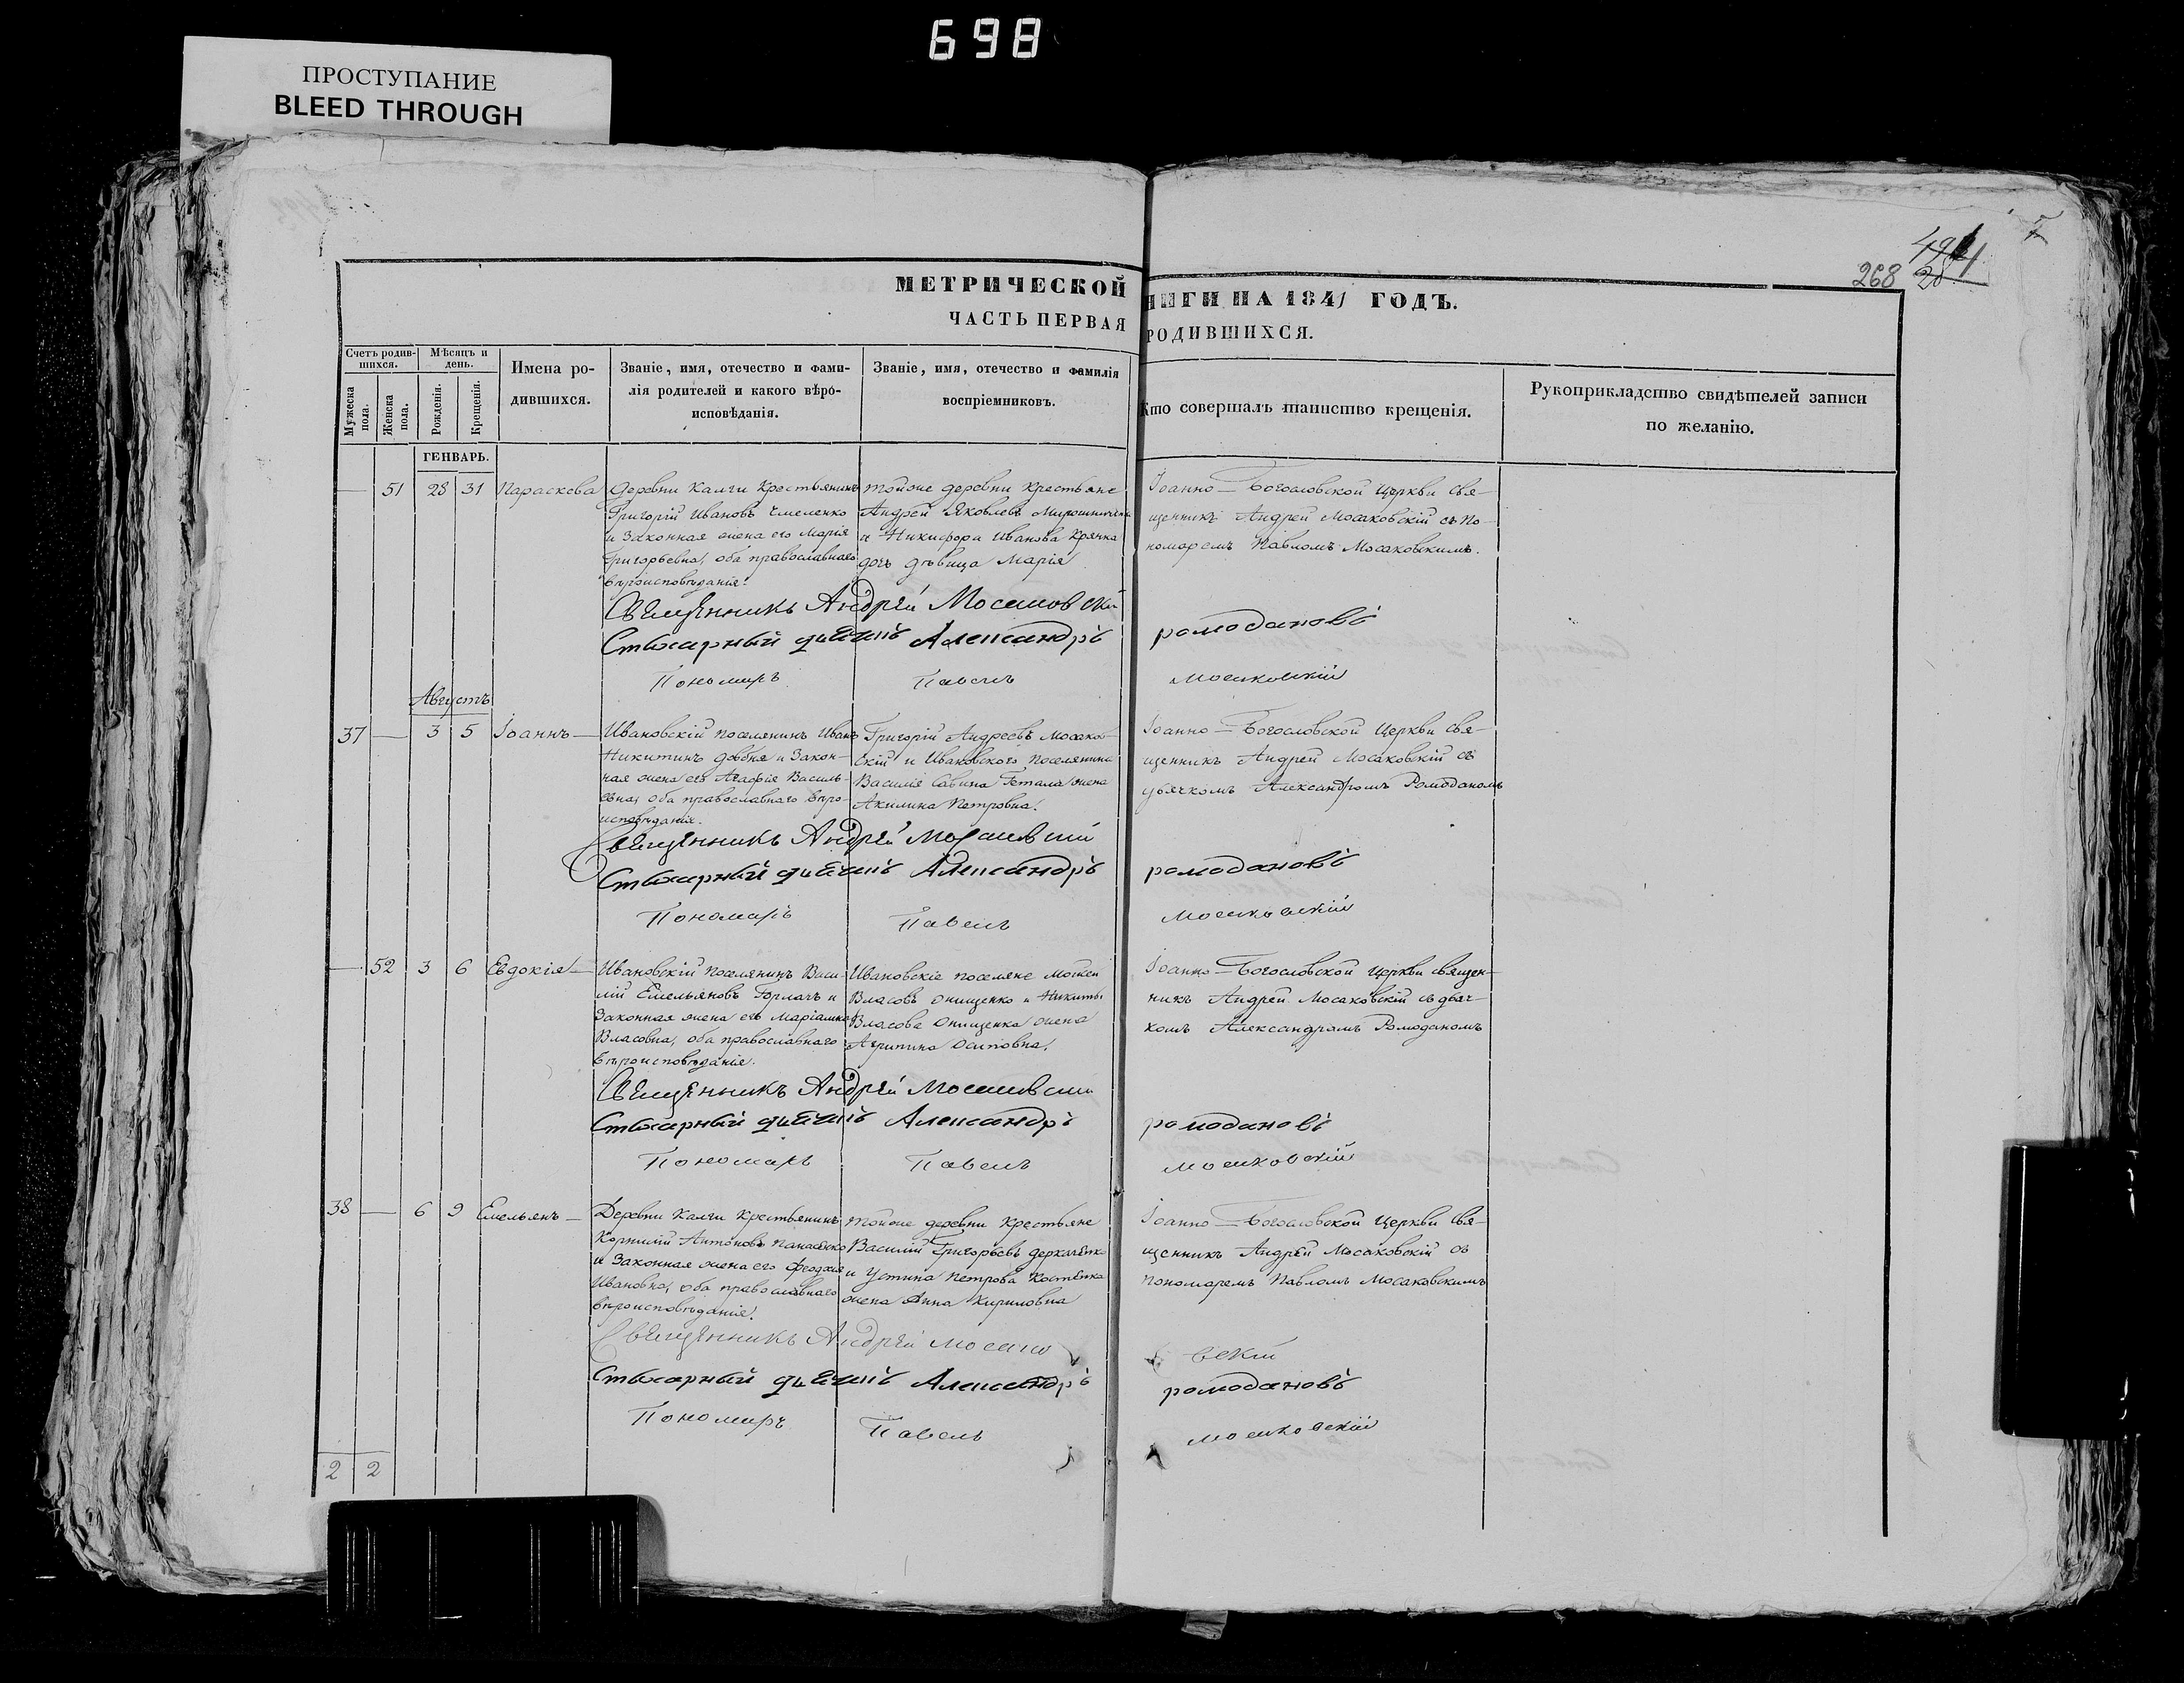 698
ПРОСТУПАНИЕ
BLEED THROUGH
268
МЕТРИЧЕСКОЙ НИГИ НА 1841 ГОДЪ.
ЧАСТЬ ПЕРВАЯ РОДИВШИХСЯ.
Счетъ родив-
шихся.
Мужеска
пола.
Женска
пола.
Мѣсяцъ и
день.
Рожденія.
Крещенія.
Имена ро-
дившихся.
Званіе, имя, отечество и фами-
лія родителей и какого вѣро-
исповѣданія.
Званіе, имя, отечество и фамилія
воспріемниковъ.
Кто совершалъ таинство крещенія.
Рукоприкладство свидѣтелей записи
по желанію.
ГЕНВАРЬ.
— 51 28 31 Параскева
Деревни Калги Крестьянинъ
Григорій Ивановъ Емеленко
и Законная жена его Марія
Григорьевна, оба православнаго
вѣроисповѣданія.
Тойже деревни крестьяне
Андрей Яковлевъ
и Никифора Иванова
дочь дѣвица Марія
Іоанно-Богословской Церкви Свя-
щенникъ Андрей Мосаковскій съ По-
номаремъ Павломъ Мосаковскимъ.
Священникъ Андрей Мосаковскій
Стихарный дьячикъ Александръ ромодановъ
Пономарь Павелъ Мосаковскій
Августъ
37 — 3 5 Іоаннъ
Ивановскій поселянинъ Иванъ
Никитинъ Довбня и Закон-
ная жена его Агафія Василь-
евна, оба православнаго вѣро-
исповѣданія.
Григорій Андреевъ Мосаков-
скій и Ивановского Поселянина
Василія Савина жена
Акилина Петровна.
Іоанно-Богословской Церкви Свя-
щенникъ Андрей Мосаковскій съ
дьячкомъ Александромъ Ромоданомъ
Священникъ Андрей Мосаковскій
Стихарный дьячикъ Александръ ромодановъ
Пономарь Павелъ Мосаковскій
— 52 3 6 Евдокія
Ивановскій поселянинъ Васи-
лій Емельяновъ Горлачъ и
Законная жена его Маріамна
Власовна, оба православнаго
вѣроисповѣданія.
Ивановскіе поселяне Мойсей
Власовъ Онищенко и Никиты
Власова Онищенка жена
Агрипина Осиповна.
Іоанно-Богословской Церкви Священ-
никъ Андрей Мосаковскій съ дьяч-
комъ Александромъ Ромоданомъ
Священникъ Андрей Мосаковскій
Стихарный дьячикъ Александръ ромодановъ
Пономарь Павелъ Мосаковскій
38 — 6 9 Емельянъ
Деревни Калги Крестьянинъ
Корнилій Антоновъ Панасенко
и Законная жена его Феодосія
Ивановна, оба православнаго
вѣроисповѣданія.
Тойже деревни крестьяне
Василій Григорьевъ Деркаченко
и Устина Петрова Костенка
жена Анна Кириловна
Іоанно-Богословской Церкви Свя-
щенникъ Андрей Мосаковскій съ
пономаремъ Павломъ Мосаковскимъ
Священникъ Андрей Мосаковскій
Стихарный дьячикъ Александръ ромодановъ
Пономарь Павелъ Мосаковскій
2 2